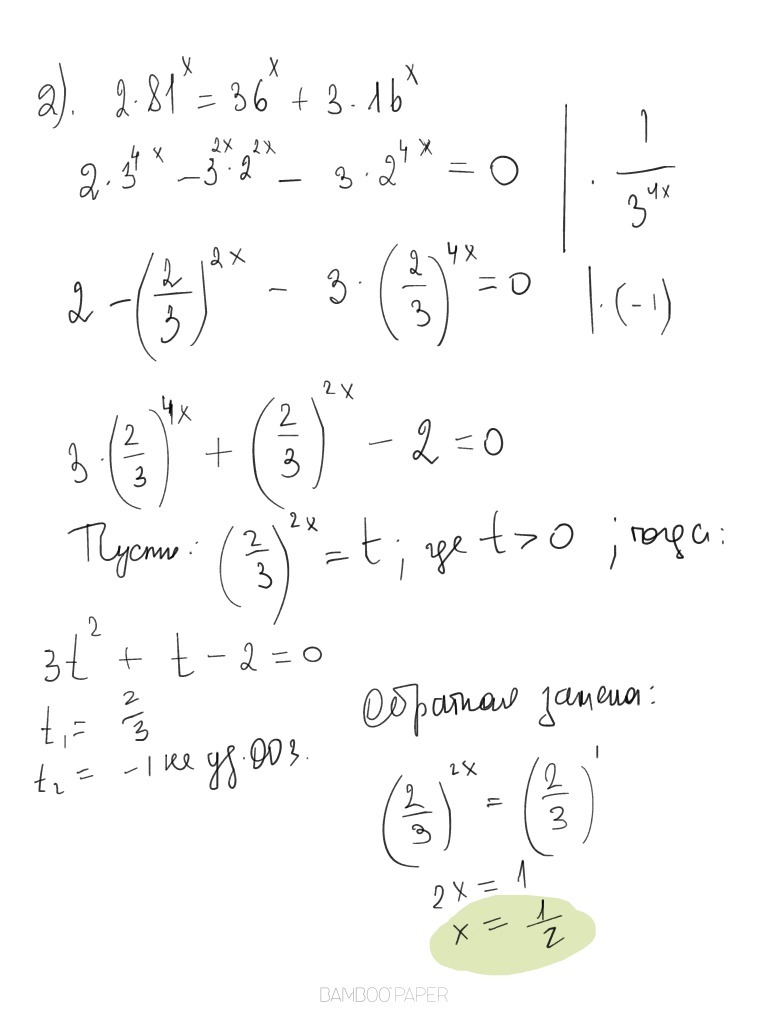 2). 2·81^x = 36^x + 3·16^x
2·3^{4x} - 3^{2x}·2^{2x} - 3·2^{4x} = 0 | · 1/3^{4x}
2 - (2/3)^{2x} - 3·(2/3)^{4x} = 0 | · (-1)
3·(2/3)^{4x} + (2/3)^{2x} - 2 = 0
Пусть: (2/3)^{2x} = t; где t > 0; тогда:
3t² + t - 2 = 0
t₁ = 2/3
t₂ = -1 не уд. ОДЗ.
Обратная замена:
(2/3)^{2x} = (2/3)^1
2x = 1
x = 1/2
BAMBOO PAPER